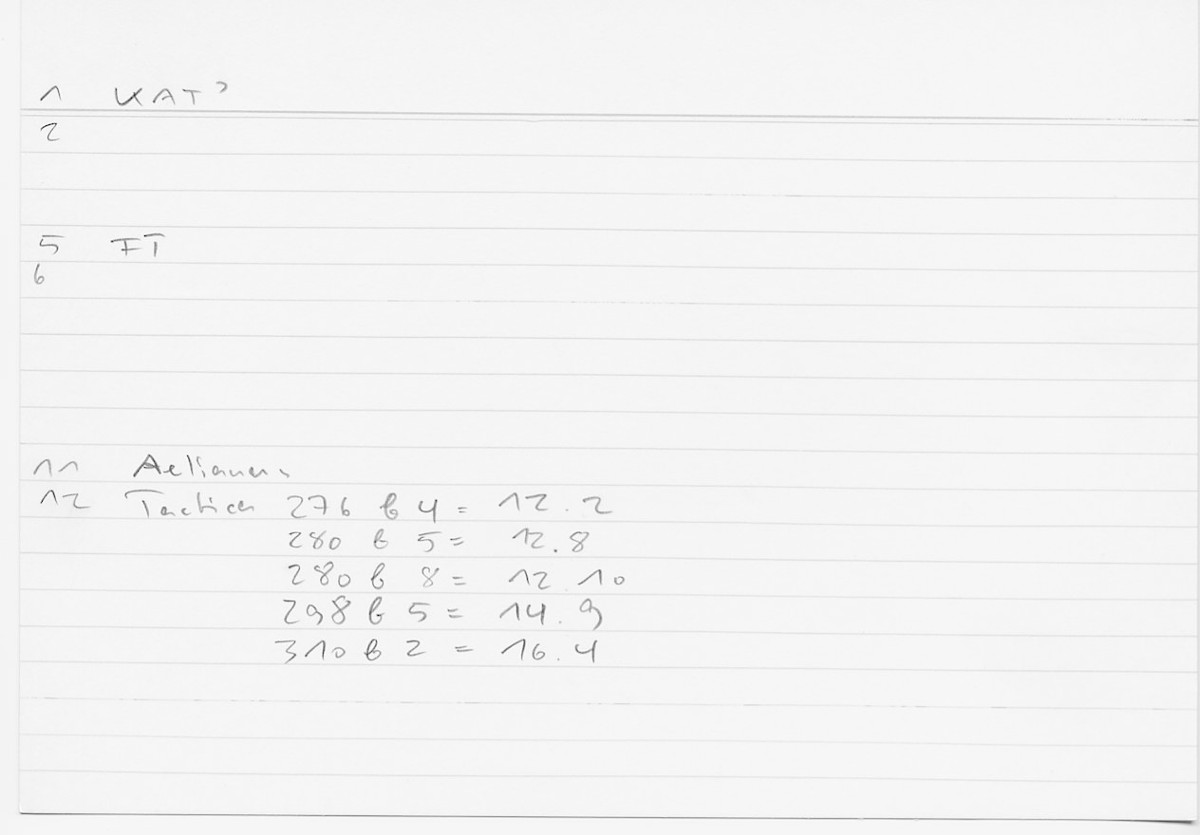 1 KAT?
2
5 FT
6
11 Aelianus
12 Tactica 276 b 4 = 12.2
280 b 5 = 12.8
280 b 8 = 12.10
298 b 5 = 14.9
310 b 2 = 16.4